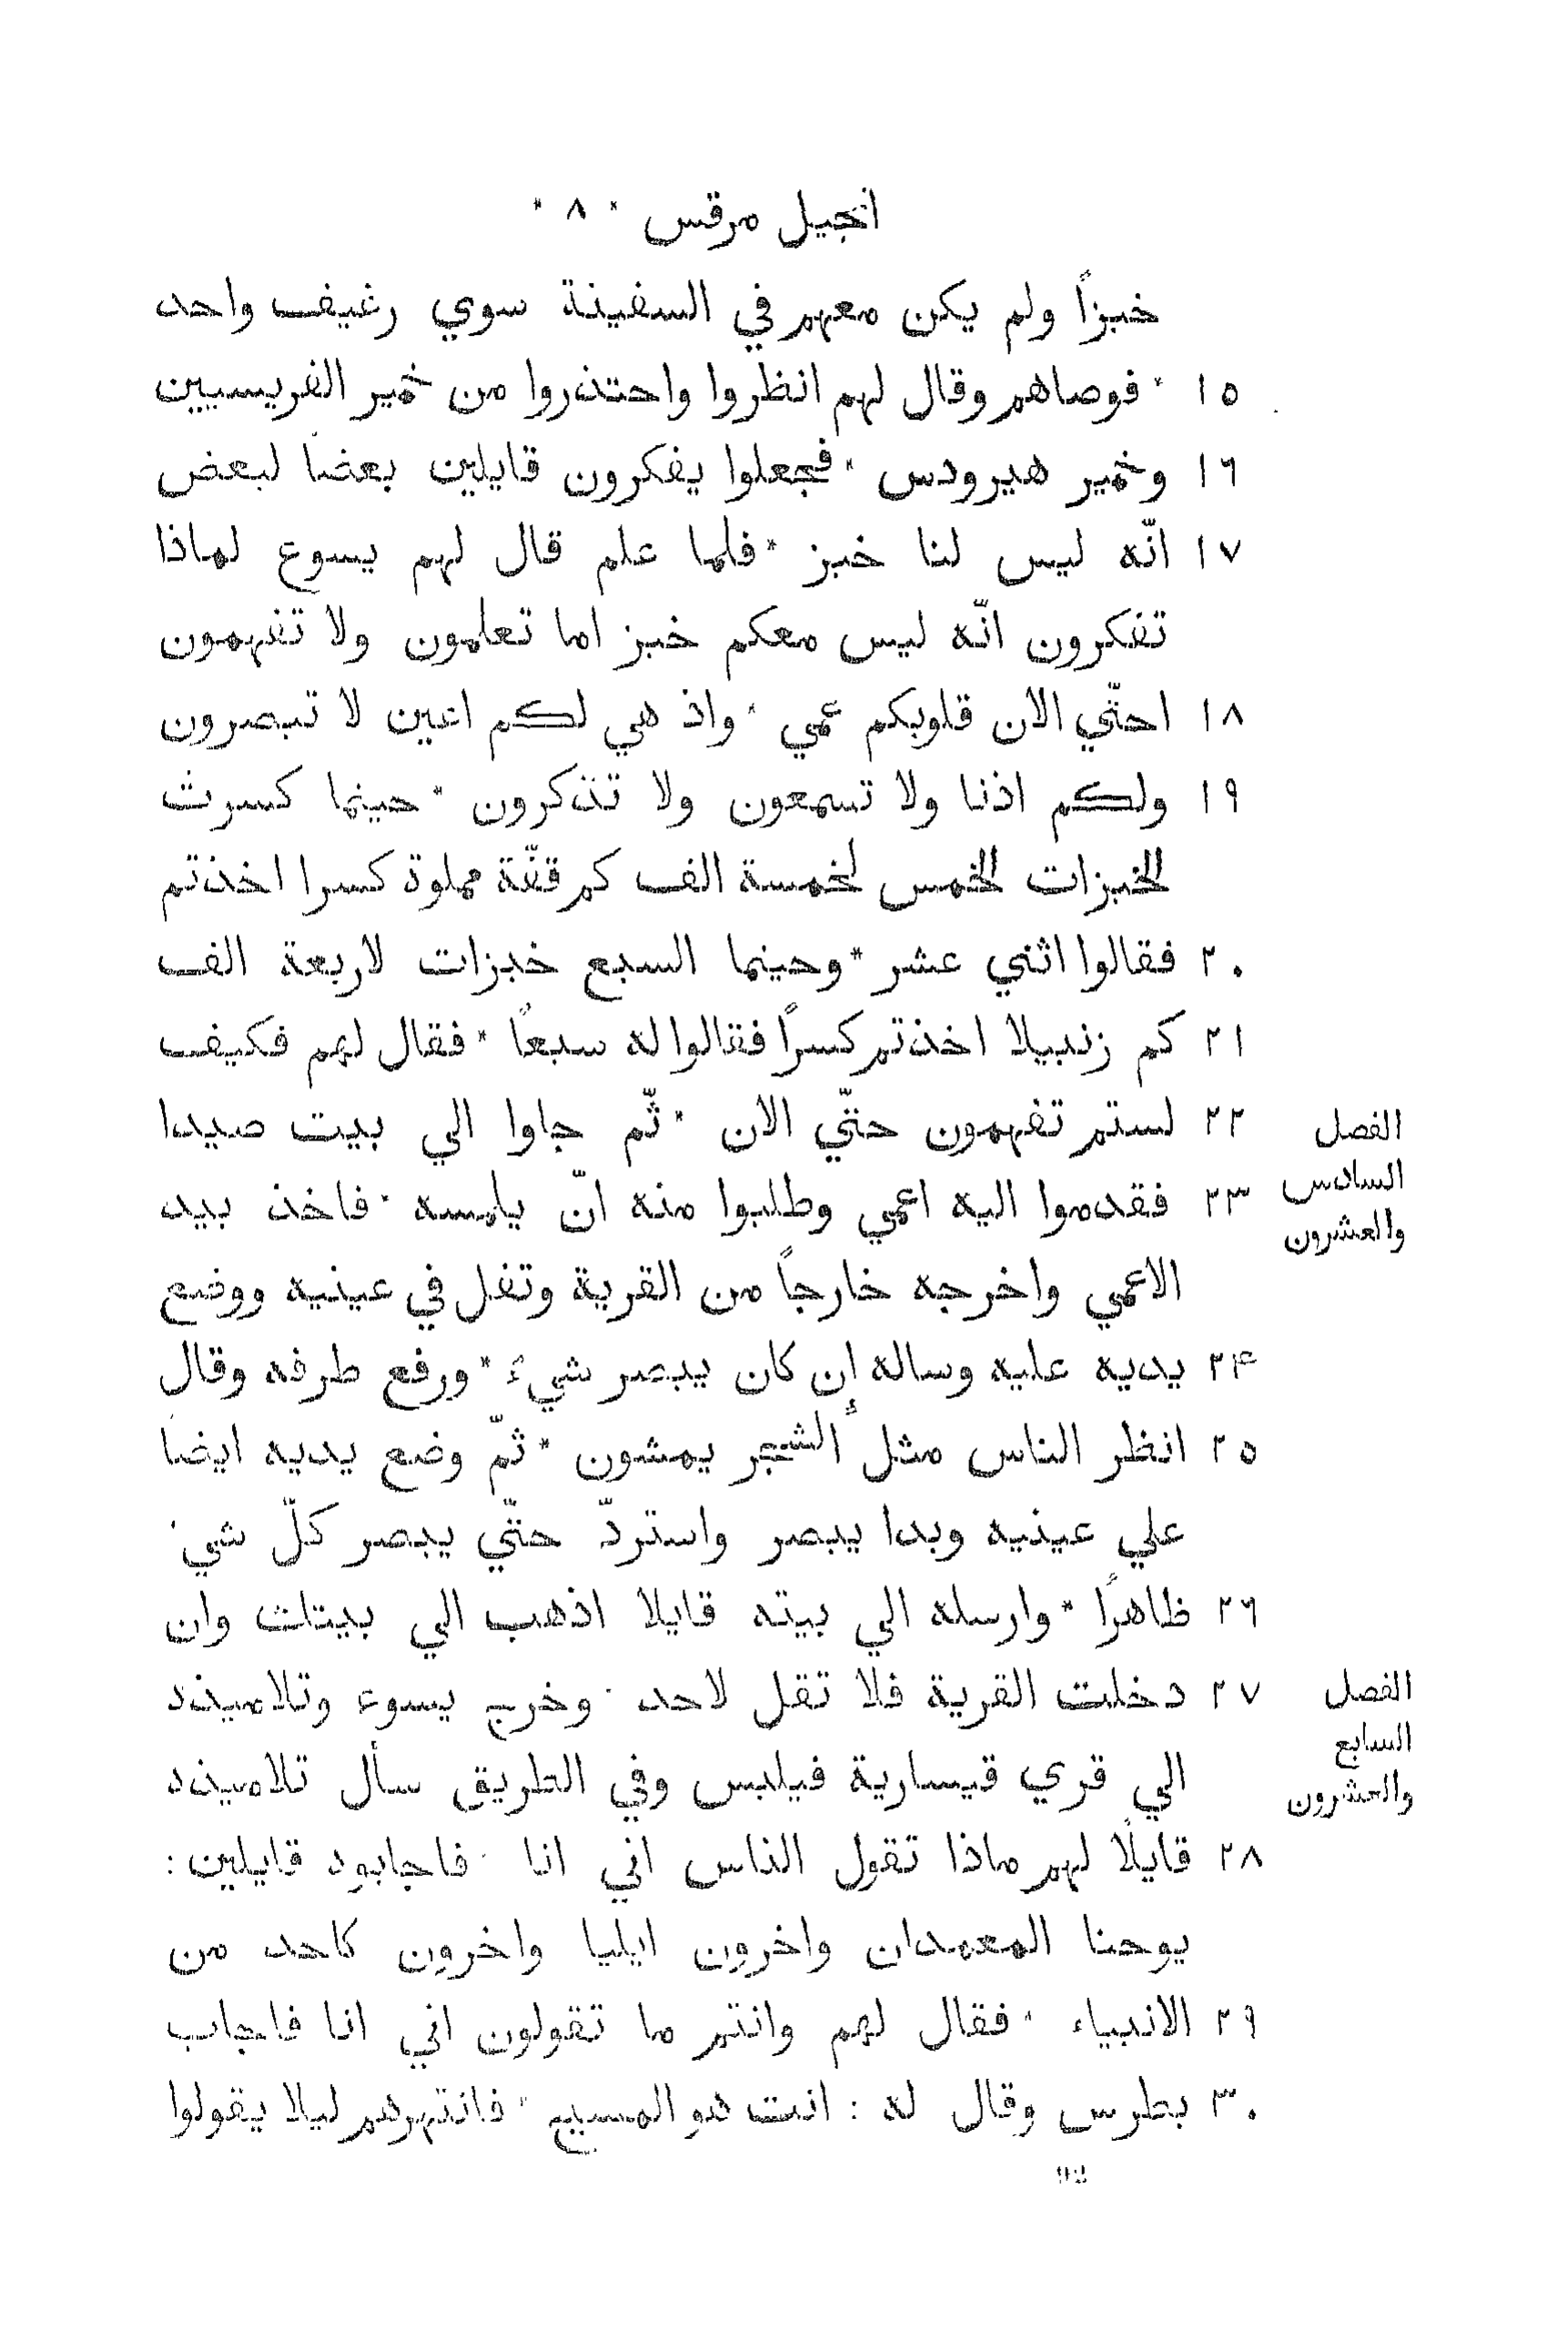 انجيل مرقس * ٨ *
خبزاً ولم يكن معهم في السفينة سوي رغيف واحد
١٥ * فوصاهم وقال لهم انظروا واحتذروا من خمير الفريسيين
١٦ وخمير هيرودس * فجعلوا يفكرون قايلين بعضاً لبعض
١٧ انّه ليس لنا خبز * فلما علم قال لهم يسوع لماذا
تفكرون انّه ليس معكم خبز اما تعلمون ولا تفهمون
١٨ احتّي الان قلوبكم عمي * واذ هي لكم اعين لا تبصرون
١٩ ولكم اذنا ولا تسمعون ولا تذكرون * حينما كسرت
الخبزات الخمس لخمسة الف كم قفّة مملوة كسرا اخذتم
٢٠ فقالوا اثني عشر * وحينما السبع خبزات لاربعة الف
٢١ كم زنبيلا اخذتم كسراً فقالوا له سبعاً * فقال لهم فكيف
٢٢ لستم تفهمون حتّي الان * ثّم جاوا الي بيت صيدا
الفصل السادس والعشرون
٢٣ فقدموا اليه اعمي وطلبوا منه انّ يلمسه * فاخذ بيد
الاعمي واخرجه خارجاً من القرية وتفل في عينيه ووضع
٢٤ يديه عليه وساله إن كان يبصر شيءً * ورفع طرفه وقال
٢٥ انظر الناس مثل ألشجر يمشون * ثمّ وضع يديه ايضاً
علي عينيه وبدا يبصر واستردّ حتّي يبصر كلّ شيء
٢٦ ظاهراً * وارسله الي بيته قايلا اذهب الي بيتك وان
٢٧ دخلت القرية فلا تقل لاحد * وخرج يسوع وتلاميذه
الفصل السابع والعشرون
الي قري قيسارية فيلبس وفي الطريق سأل تلاميذه
٢٨ قايلًا لهم ماذا تقول الناس اني انا * فاجابوه قايلين :
يوحنا المعمدان واخرون ايليا واخرون كاحد من
٢٩ الانبياء * فقال لهم وانتم ما تقولون اني انا فاجاب
٣٠ بطرس وقال له : انت هو المسيح * فانتهرهم ليلا يقولوا